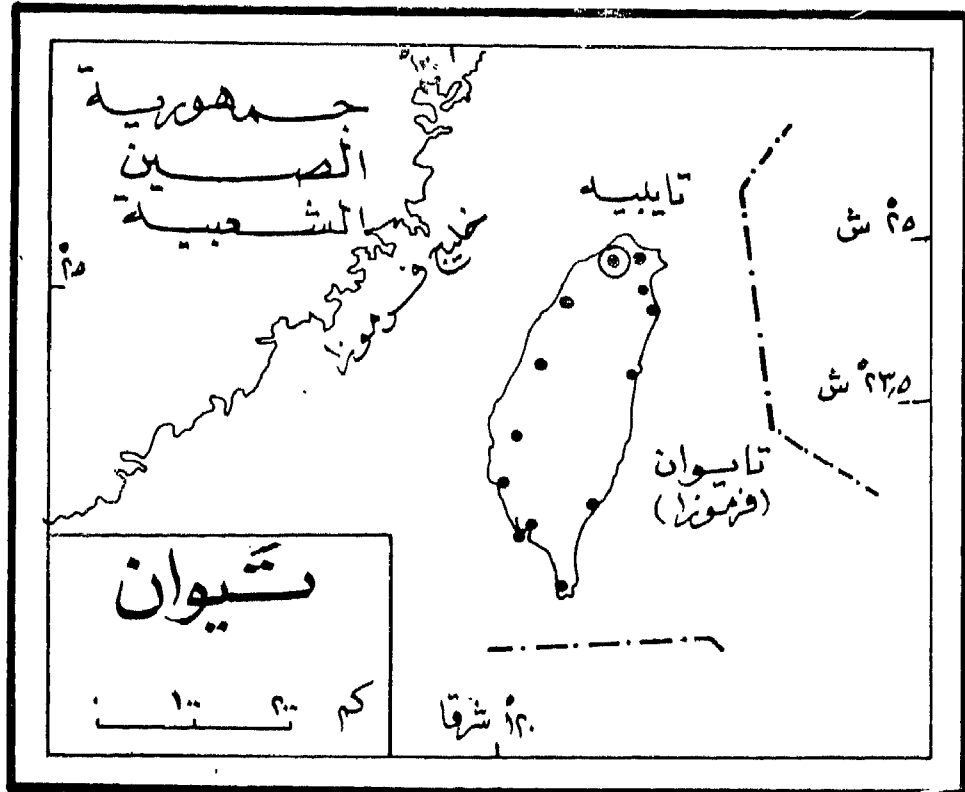 °١٢٠
جمهورية
الصين
الشعبية
خليج فرموزا
تايبيه
°٢٥ ش
°٢٥
°٢٣,٥ ش
تايوان
(فرموزا)
تَيوان
٠ ١٠٠ ٢٠٠ كم
°١٢٠ شرقا